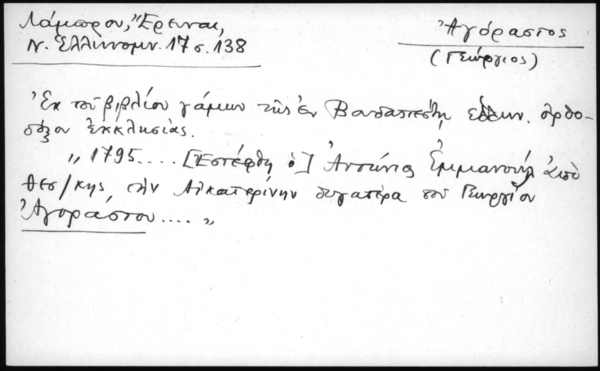 Λάμπρου, Ἔρευναι,
Ν. Ἑλληνομν. 17 σ. 138
Ἀγόραστος
(Γεώργιος)
Ἐκ τοῦ βιβλίου γάμων τῆς ἐν Βουδαπέστῃ ἑλλην. ὀρθο-
δόξου ἐκκλησίας.
„ 1795.... [Ἐστέφθη ὁ] Ἀντώνιος Ἐμμανουὴλ ἀπὸ
Θεσ/κης, τὴν Αἰκατερίνην θυγατέρα τοῦ Γεωργίου
Ἀγοράστου.... „